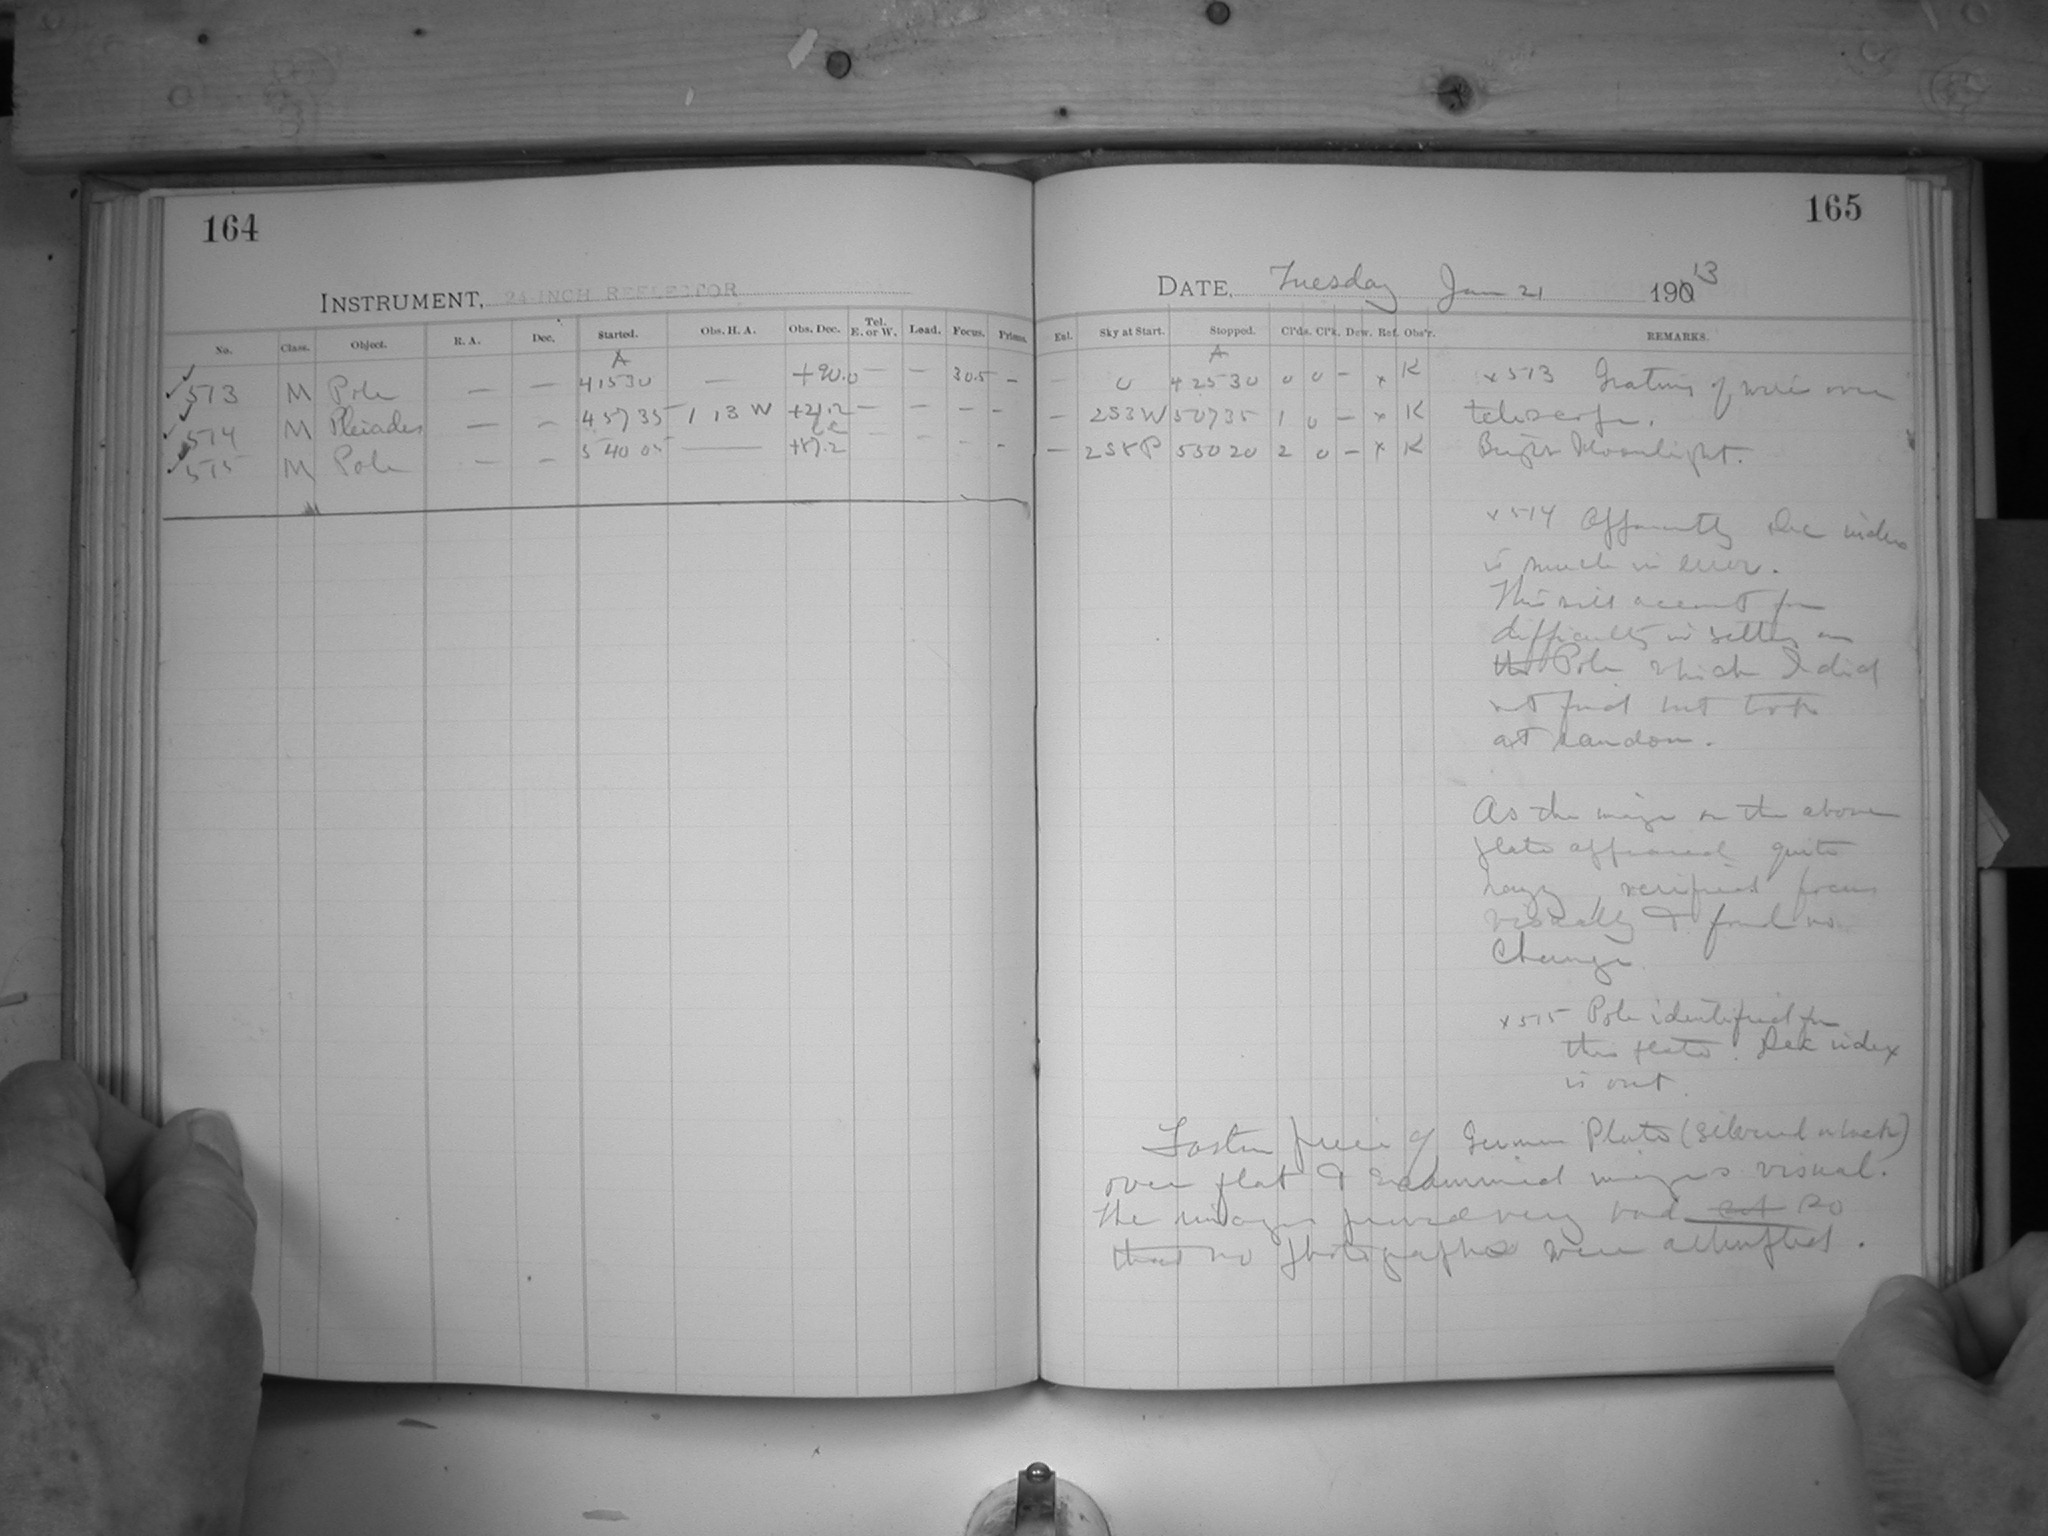 164
165
INSTRUMENT, 24-INCH REFLECTOR
DATE, Tuesday Jan 21 1913
No. Class. Object. R. A. Dec. Started. Obs. H. A. Obs. Dec. Tel. E. or W. Load. Focus. Prisms.
Enl. Sky at Start. Stopped. Cl'ds. Cl'k. Dew. Ref. Obs'r. REMARKS.
A
A
513 M Pole — — 4 15 30 — +90.0 — — 30.5 –
0 4 25 30 0 0 – x K
514 M Pleiades — — 4 57 35 1 13 W +21.2 — — – –
– 2S3W 50735 1 0 – x K
515 M Pole — — 5 40 05 — +87.2 – – – –
– 2S8P 55020 2 0 – x K
x 513 Grating of wire over
telescope.
Bright Moonlight.
x 514 Apparently Dec index
is much in error.
This will account for
difficulty in setting on
the Pole which I did
not find but took
at random.
As the image on the above
plate appeared quite
hazy verified focus
visually & found no
change.
x 515 Pole identified for
this plate. Dec index
is out.
piece of German Plate (silvered
over flat & examined images visual.
The images proved very bad so
that no photographs were attempted.